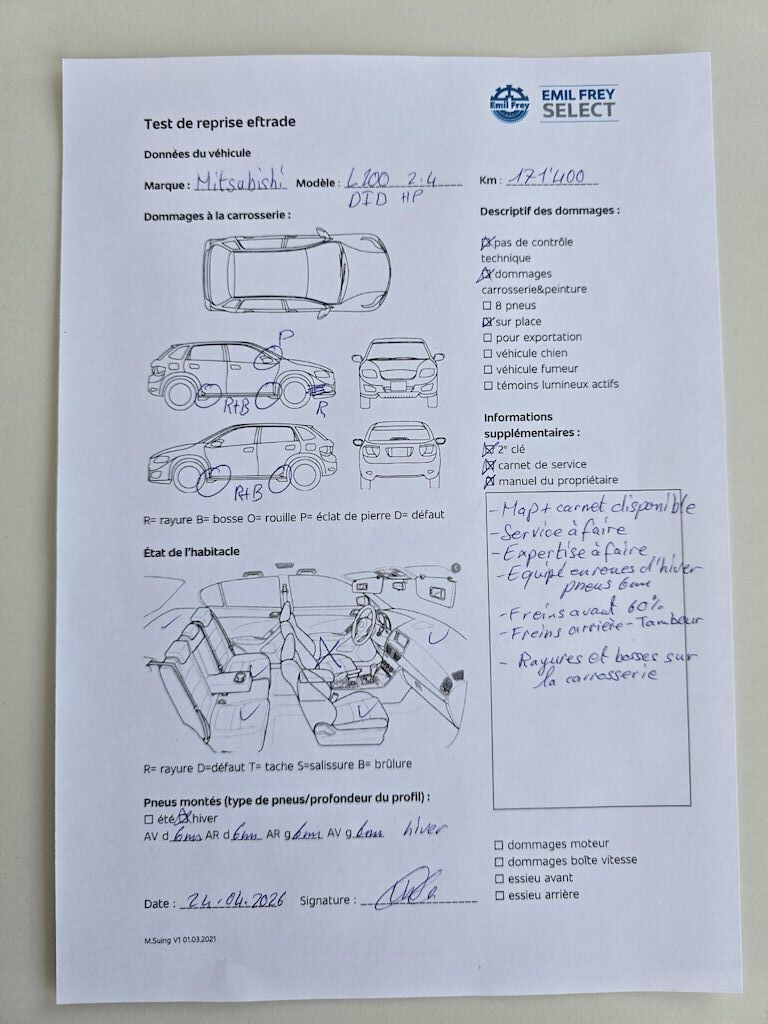 Emil Frey
EMIL FREY
SELECT
Test de reprise eftrade
Données du véhicule
Marque : Mitsubishi Modèle : L200 2.4 Km : 171'400
DID HP
Dommages à la carrosserie :
P
R+B
R
R+B
R= rayure B= bosse O= rouille P= éclat de pierre D= défaut
État de l'habitacle
R= rayure D=défaut T= tache S=salissure B= brûlure
Pneus montés (type de pneus/profondeur du profil) :
☐ été ☒ hiver
AV d 6mm AR d 6mm AR g 6mm AV g 6mm hiver
Date : 24.04.2026 Signature :
M.Suing V1 01.03.2021
Descriptif des dommages :
☒ pas de contrôle
technique
☒ dommages
carrosserie&peinture
☐ 8 pneus
☒ sur place
☐ pour exportation
☐ véhicule chien
☐ véhicule fumeur
☐ témoins lumineux actifs
Informations
supplémentaires :
☒ 2e clé
☒ carnet de service
☒ manuel du propriétaire
- Map + carnet disponible
- Service à faire
- Expertise à faire
- Equipé en roues d'hiver
pneus 6mm
- Freins avant 60%
- Freins arrière - Tambour
- Rayures et bosses sur
la carrosserie
☐ dommages moteur
☐ dommages boîte vitesse
☐ essieu avant
☐ essieu arrière